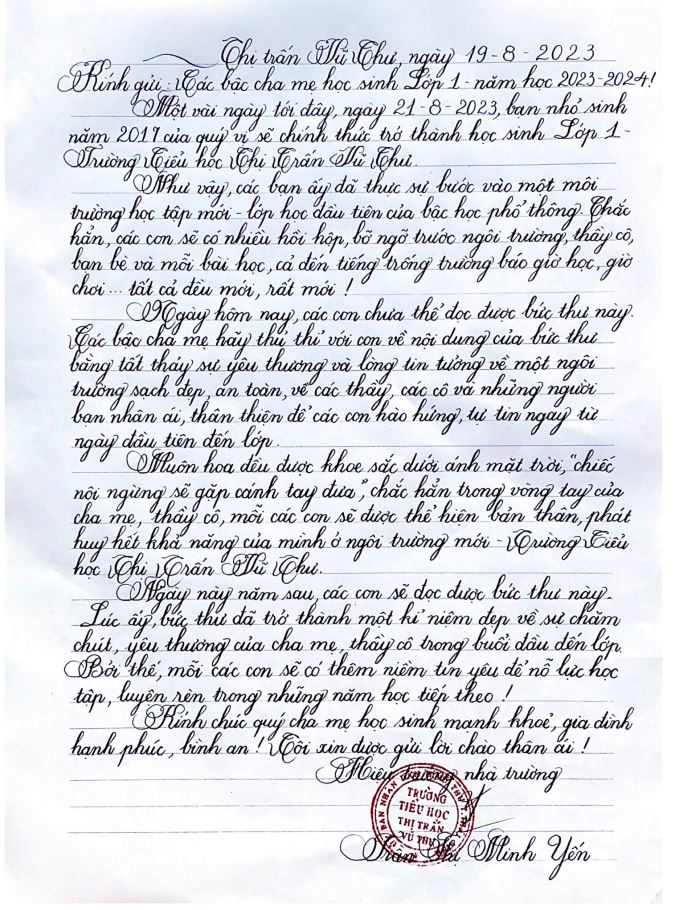 Thị trấn Vũ Thư, ngày 19-8-2023
Kính gửi: Các bậc cha mẹ học sinh Lớp 1- năm học 2023-2024!
Một vài ngày tới đây, ngày 21-8-2023, bạn nhỏ sinh
năm 2017 của quý vị sẽ chính thức trở thành học sinh Lớp 1-
Trường Tiểu học Thị Trấn Vũ Thư.
Như vậy, các bạn ấy đã thực sự bước vào một môi
trường học tập mới - lớp học đầu tiên của bậc học phổ thông. Chắc
hẳn, các con sẽ có nhiều hồi hộp, bỡ ngỡ trước ngôi trường, thầy cô,
bạn bè và mỗi bài học, cả đến tiếng trống trường báo giờ học, giờ
chơi... tất cả đều mới, rất mới !
Ngày hôm nay, các con chưa thể đọc được bức thư này.
Các bậc cha mẹ hãy thủ thỉ với con về nội dung của bức thư
bằng tất thảy sự yêu thương và lòng tin tưởng về một ngôi
trường sạch đẹp, an toàn, về các thầy, các cô và những người
bạn nhân ái, thân thiện để các con hào hứng, tự tin ngay từ
ngày đầu tiên đến lớp.
Muôn hoa đều được khoe sắc dưới ánh mặt trời, "chiếc
nôi ngừng sẽ gặp cánh tay đưa", chắc hẳn trong vòng tay của
cha mẹ, thầy cô, mỗi các con sẽ được thể hiện bản thân, phát
huy hết khả năng của mình ở ngôi trường mới - Trường Tiểu
học Thị Trấn Vũ Thư.
Ngày này năm sau, các con sẽ đọc được bức thư này.
Lúc ấy, bức thư đã trở thành một kỉ niệm đẹp về sự chăm
chút, yêu thương của cha mẹ, thầy cô trong buổi đầu đến lớp.
Bởi thế, mỗi các con sẽ có thêm niềm tin yêu để nỗ lực học
tập, luyện rèn trong những năm học tiếp theo !
Kính chúc quý cha mẹ học sinh mạnh khoẻ, gia đình
hạnh phúc, bình an ! Tôi xin được gửi lời chào thân ái !
Hiệu trưởng nhà trường
TRƯỜNG
TIỂU HỌC
THỊ TRẤN
VŨ THƯ
Trần Thị Minh Yến